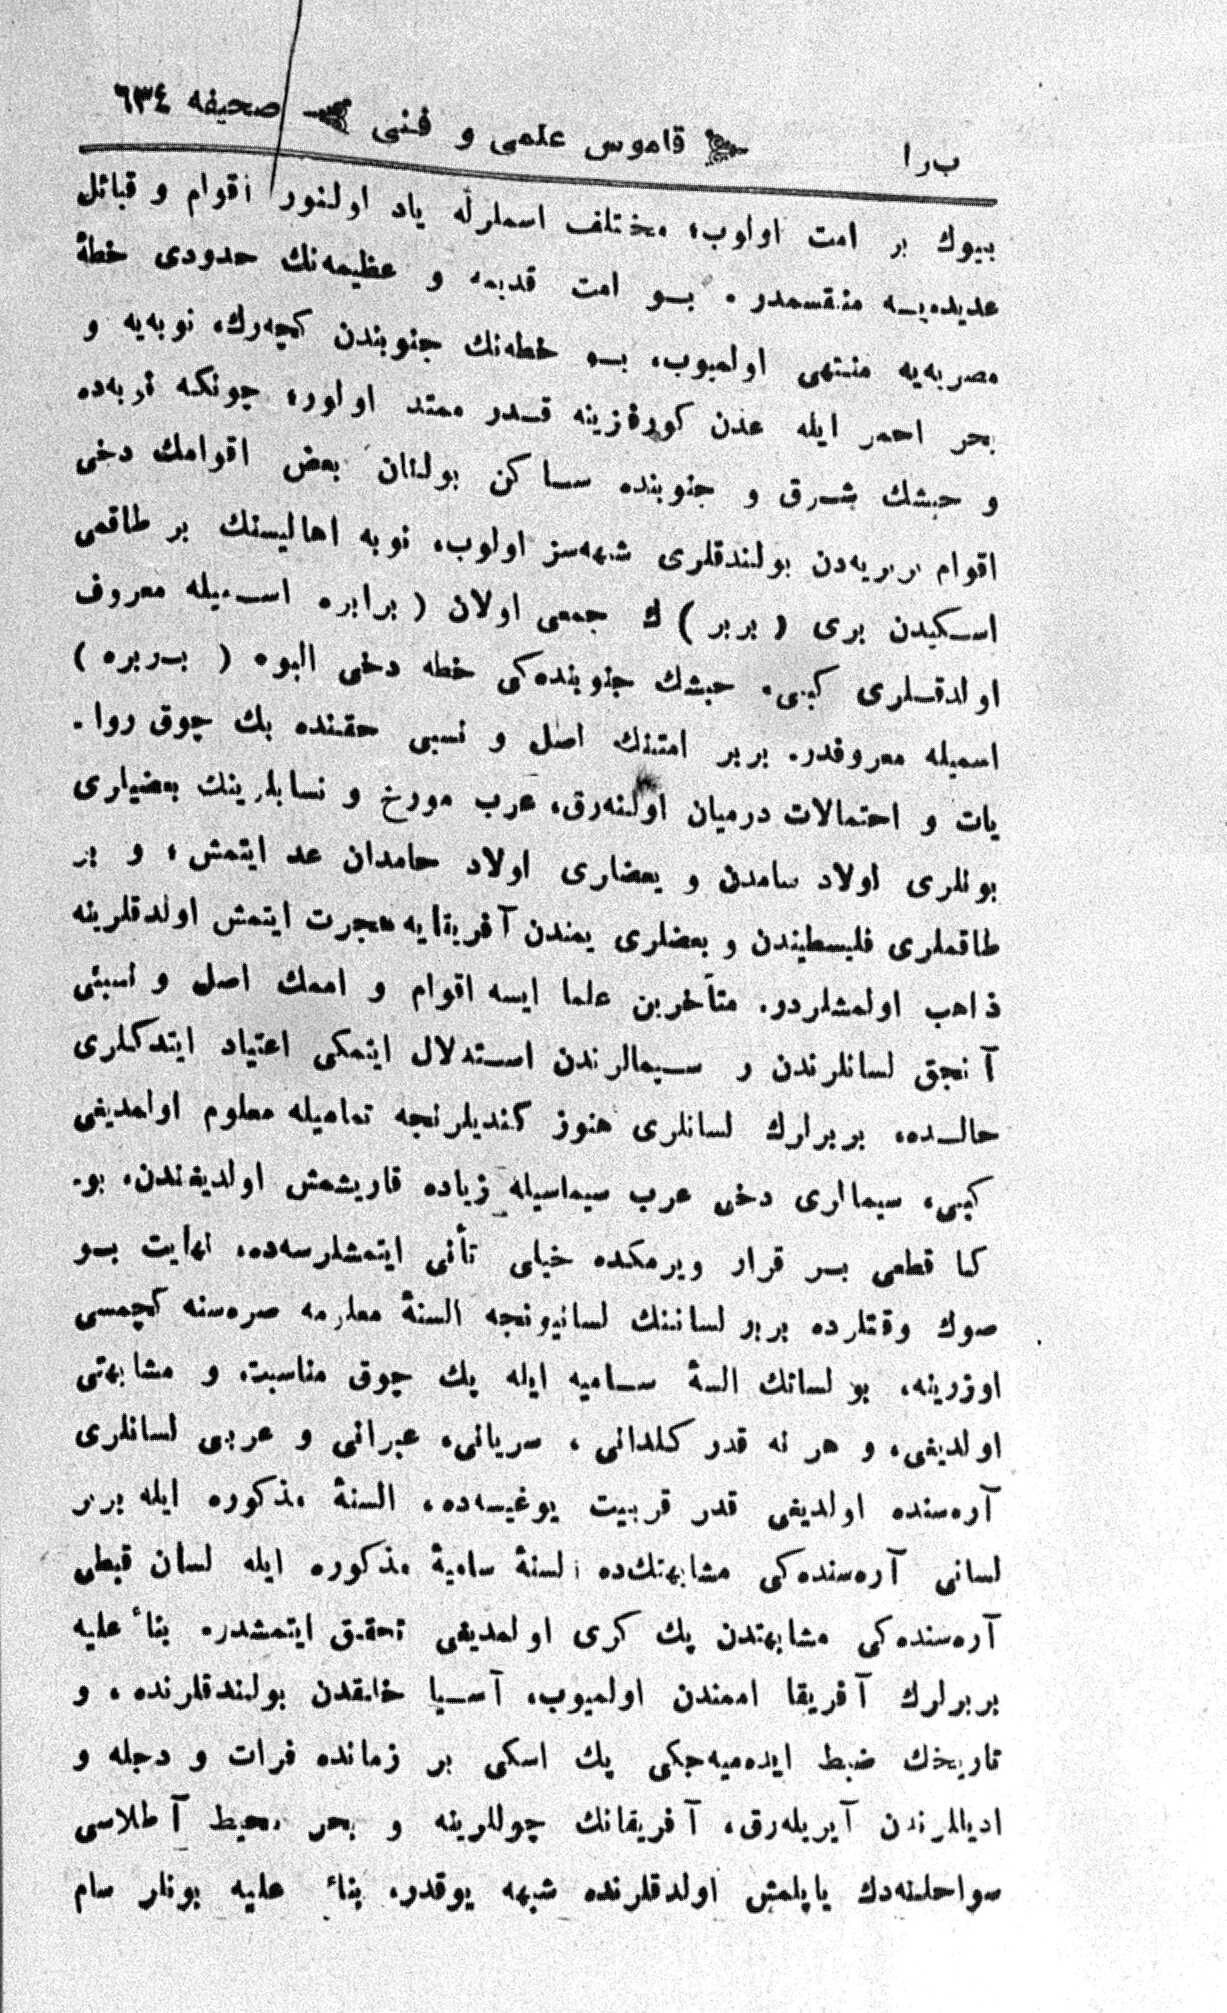 ب‌را قاموس علمی و فنی صحیفه ٦٣٤
بیوك بر امت اولوب، مختلف اسملرله یاد اولنور اقوام و قبائل
عدیده‌یـه منقسمدر. بـو امت قدیمه و عظیمه‌نك حدودی خطهٔ
مصریه‌یه منتهی اولمیوب، بـو خطه‌نك جنوبندن كچه‌رك، نوبه‌یه و
بحر احمر ایله عدن كورفزینه قـدر ممتد اولور؛ چونكه نوبه‌ده
و حبشك شـرق و جنوبنده سـاكن بولنان بعض اقوامك دخی
اقوام بربریه‌دن بولندقلری شبهه‌سز اولوب، نوبه اهالیسنك بر طاقمی
اسـكیدن بری (بربر)ك جمعی اولان (برابره اسـمیله معروف
اولدقـلری كبی، حبشك جنوبنده‌كی خطه دخی الیوم (بـربره)
اسمیله معروفدر. بربر امتنك اصل و نسبی حقـنده پك چوق روا-
یات و احتمالات درمیان اولنه‌رق، عرب مورخ و نسابلرینك بعضیلری
بونلری اولاد سامدن و بعضلری اولاد حامدان عد ایتمش، و بر
طاقملری فلسطیندن و بعضلری یمندن آفریقایه هجرت ایتمش اولدقلرینه
ذاهب اولمشلردر. متأخرین علما ایسه اقوام و اممك اصل و نسبنی
آنجق لسانلرندن و سـیمالرندن اسـتدلال ایتمكی اعتیاد ایتدكلری
حالـده، بربرلرك لسانلری هنوز كندیلرنجه تمامیله معلوم اولمدیغی
كبی، سیمالری دخی عرب سیماسیله زیاده قاریشمش اولدیغندن، بو-
كا قطعی بـر قرار ویرمكده خیلی تأنی ایتمشلرسه‌ده، نهایت بـو
صوك وقتلرده بربر لساننك لسانیونجه السنهٔ معلومه صره‌سنه كچمسی
اوزرینه، بو لسانك السنهٔ سـامیه ایله پك چوق مناسبت و مشابهتی
اولدیغی، و هر نه قدر كلدانی، سریانی، عبرانی و عربی لسانلری
آره‌سنده اولدیغی قدر قربیت یوغیسه‌ده، السنهٔ مذكوره ایله بربر
لسانی آره‌سنده‌كی مشابهتك‌ده السنهٔ سامیهٔ مذكوره ایله لسان قبطی
آره‌سنده‌كی مشابهتدن پك كری اولمدیغی تحقـق ایتمشدر. بناءً علیه
بربرلرك آفریقا اممندن اولمیوب، آسـیا خلقدن بولندقلرنده، و
تاریخك ضبط ایده‌میه‌جكی پك اسكی بر زمانده فرات و دجله و
ادیاللرندن آیریله‌رق، آفریقانك چوللرینه و بحر محیط آطلاسی
سواحلنه‌دك یاپلمش اولدقلرنده شبهه یوقدر. بناءً علیه بونلر سام